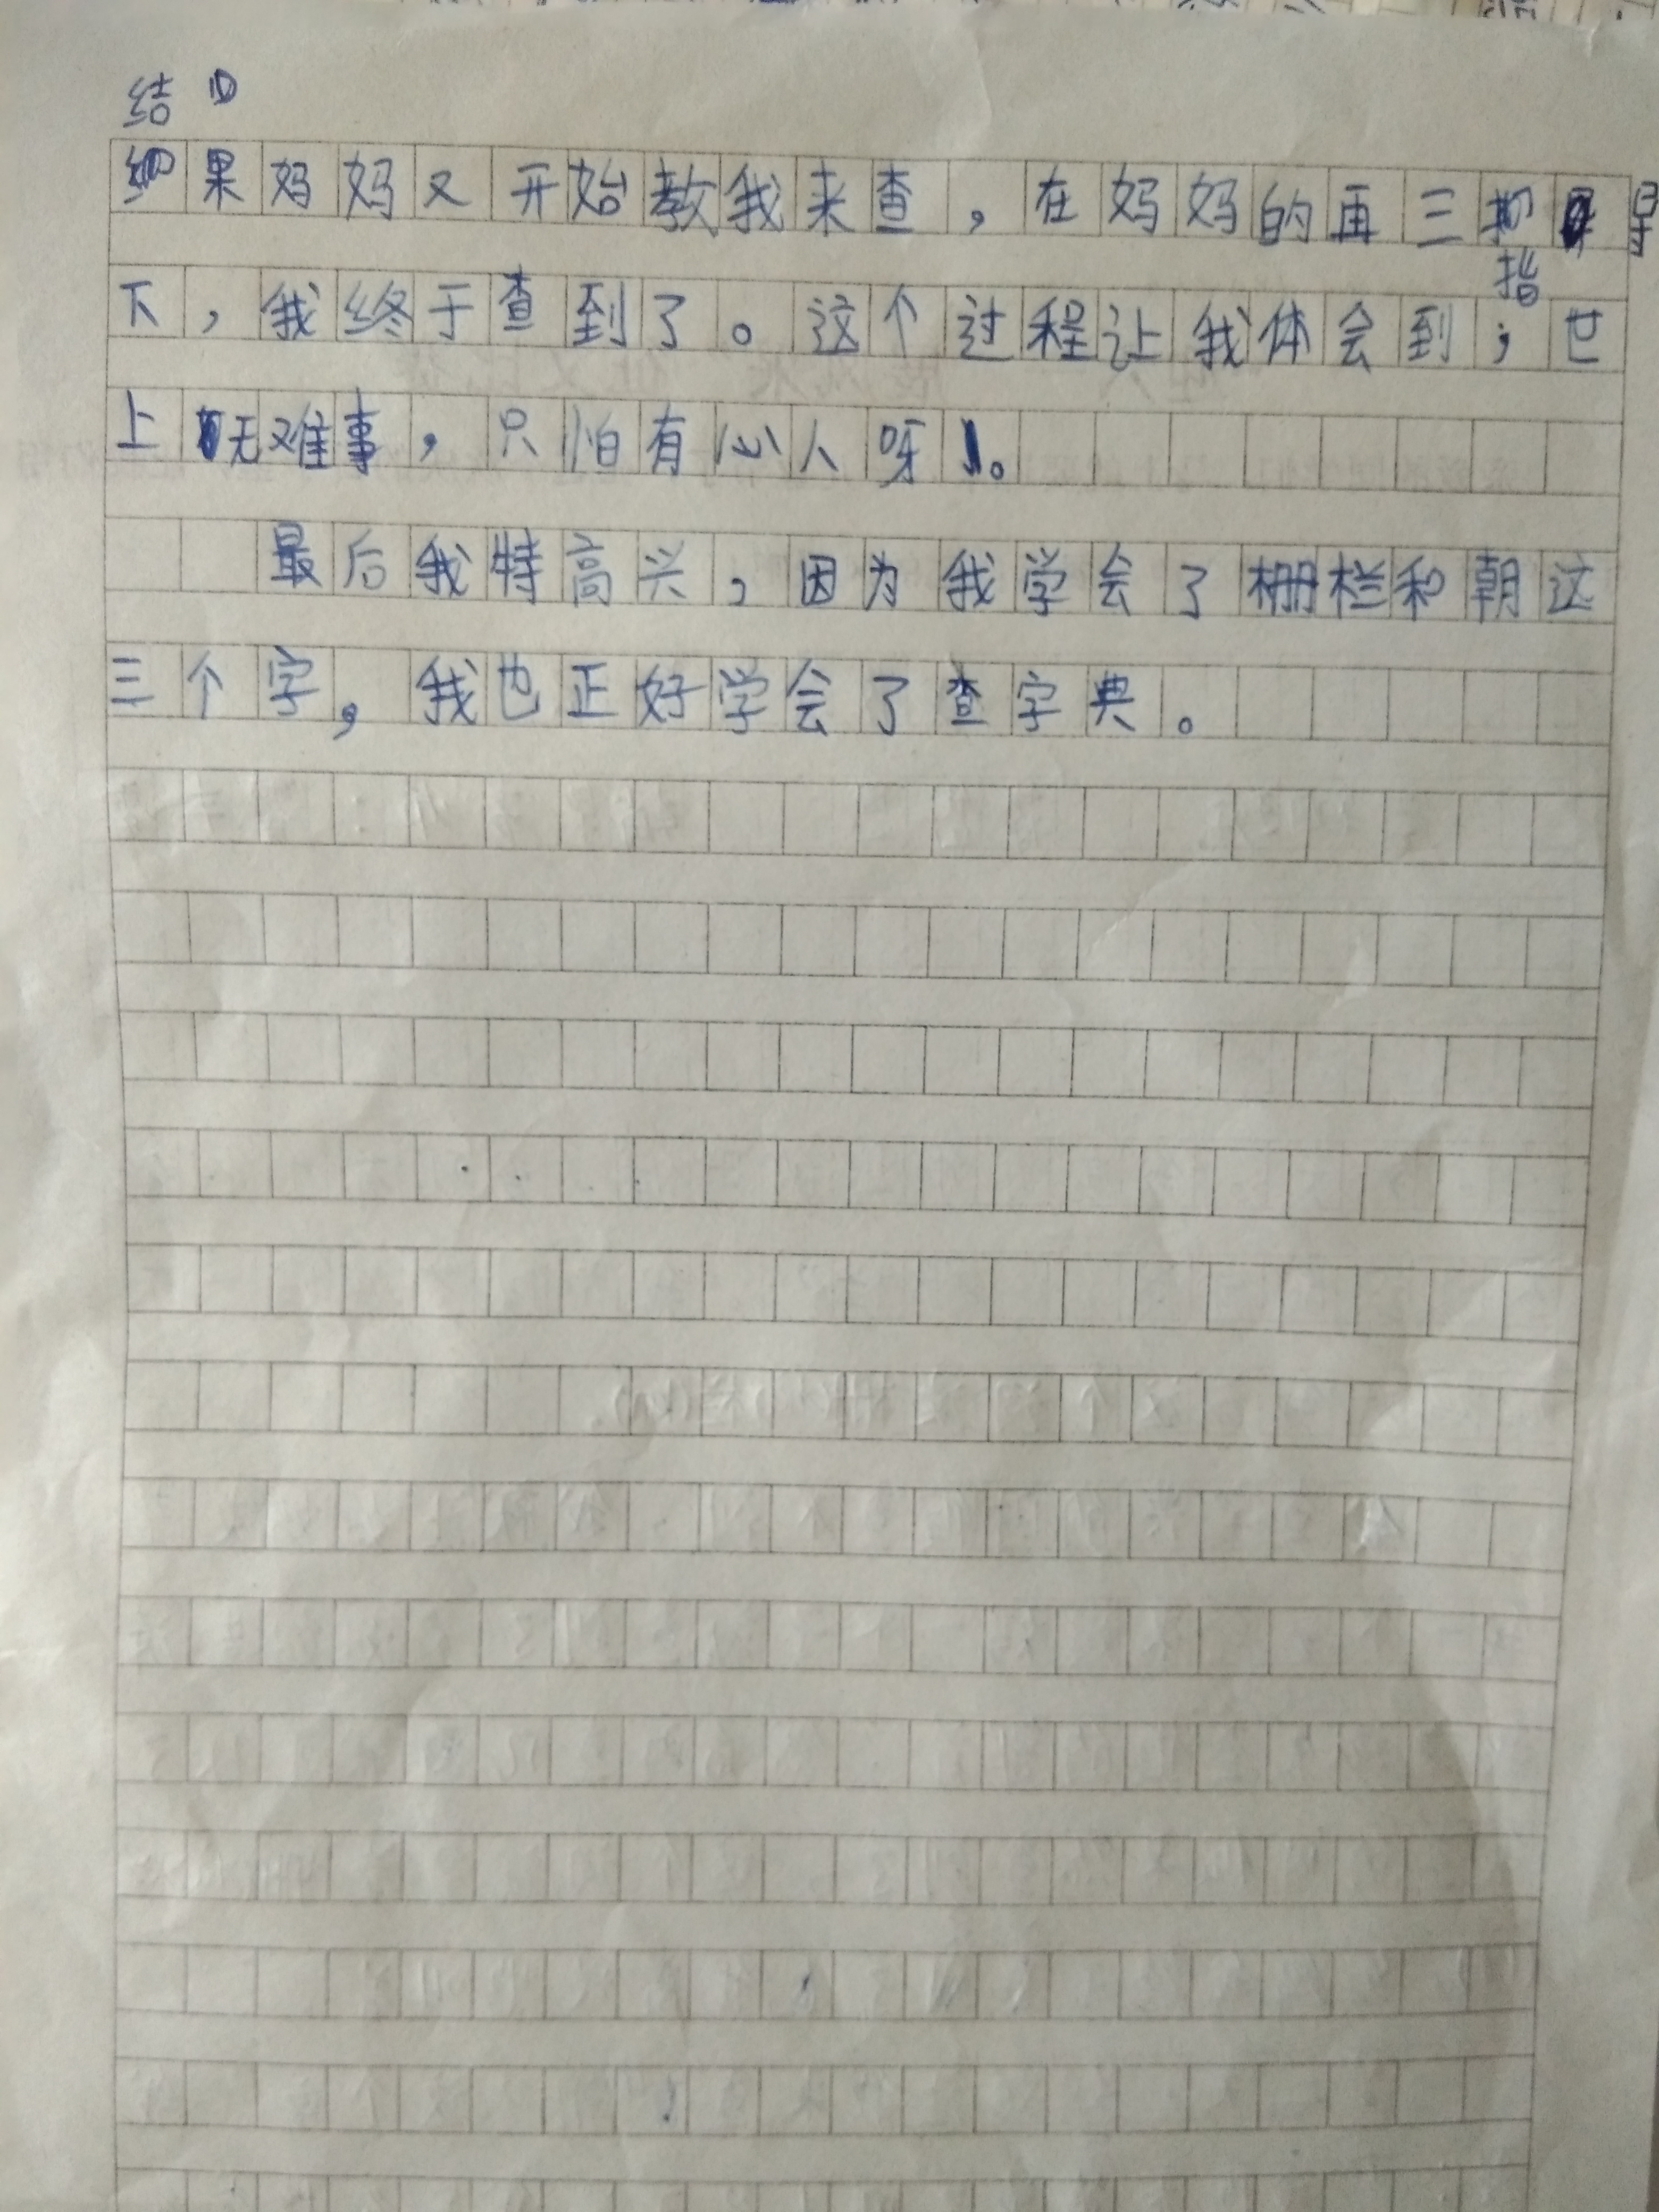 结
果妈妈又开始教我来查，在妈妈的再三指导
下，我终于查到了。这个过程让我体会到；世
上无难事，只怕有心人呀。
最后我特高兴，因为我学会了栅栏和朝这
三个字，我也正好学会了查字典。